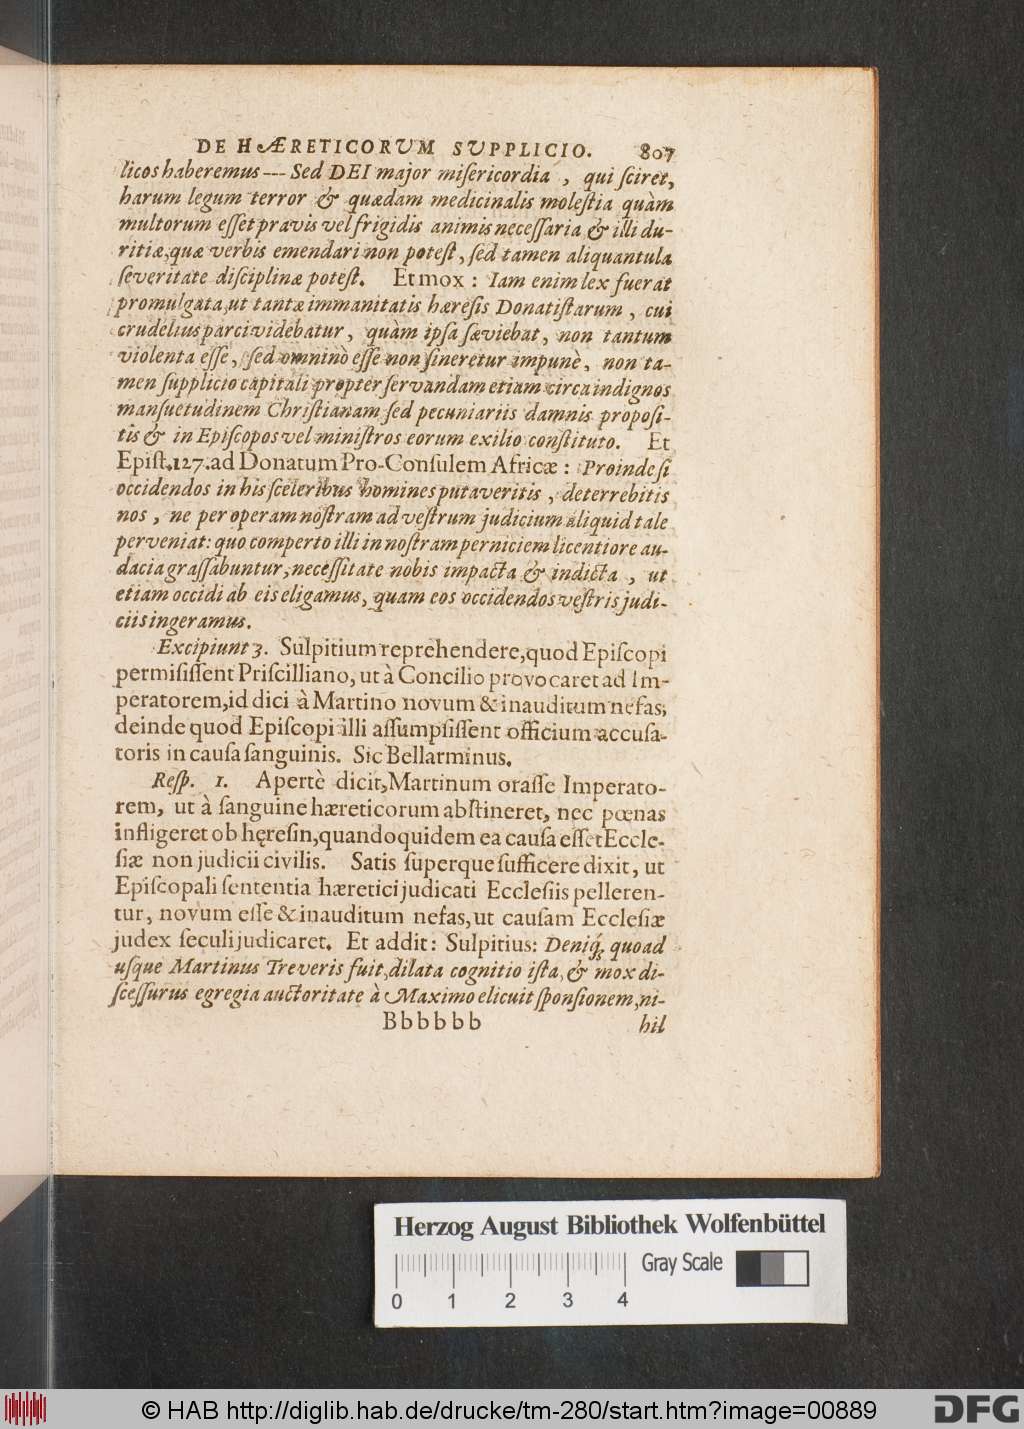 DE HÆRETICORUM SUPPLICIO. 807
licos haberemus --- Sed DEI major miſericordia, qui ſciret,
harum legum terror & quædam medicinalis moleſtia quàm
multorum eſſet pravis vel frigidis animis neceſſaria & illi du-
ritiæ, quæ verbis emendari non poteſt, ſed tamen aliquantula
ſeveritate diſciplinæ poteſt. Et mox: Iam enim lex fuerat
promulgata, ut tantæ immanitatis hæreſis Donatiſtarum, cui
crudelius parci videbatur, quàm ipſa ſæviebat, non tantum
violenta eſſe, ſed omninò eſſe non ſineretur impunè, non ta-
men ſupplicio capitali propter ſervandam etiam circa indignos
manſuetudinem Chriſtianam ſed pecuniariis damnis propoſi-
tis & in Epiſcopos vel miniſtros eorum exilio conſtituto. Et
Epiſt. 127. ad Donatum Pro-Conſulem Africæ: Proinde ſi
occidendos in his ſceleribus homines putaveritis, deterrebitis
nos, ne per operam noſtram ad veſtrum judicium aliquid tale
perveniat: quo comperto illi in noſtram perniciem licentiore au-
dacia graſſabuntur, neceſſitate nobis impacta & indicta, ut
etiam occidi ab eis eligamus, quam eos occidendos veſtris judi-
ciis ingeramus.
Excipiunt 3. Sulpitium reprehendere, quod Epiſcopi
permiſiſſent Priſcilliano, ut à Concilio provocaret ad Im-
peratorem, id dici à Martino novum & inauditum nefas,
deinde quod Epiſcopi illi aſſumpſiſſent officium accuſa-
toris in cauſa ſanguinis. Sic Bellarminus.
Reſp. 1. Apertè dicit, Martinum oraſſe Imperato-
rem, ut à ſanguine hæreticorum abſtineret, nec pœnas
infligeret ob hęreſin, quandoquidem ea cauſa eſſet Eccle-
ſiæ non judicii civilis. Satis ſuperque ſufficere dixit, ut
Epiſcopali ſententia hæretici judicati Eccleſiis pelleren-
tur, novum eſſe & inauditum nefas, ut cauſam Eccleſiæ
judex ſeculi judicaret. Et addit: Sulpitius: Deniq́; quoad
uſque Martinus Treveris fuit, dilata cognitio iſta, & mox di-
ſceſſurus egregia auctoritate à Maximo elicuit ſponſionem, ni-
Bbbbbb hil
Herzog August Bibliothek Wolfenbüttel
Gray Scale
0 1 2 3 4
© HAB http://diglib.hab.de/drucke/tm-280/start.htm?image=00889
DFG